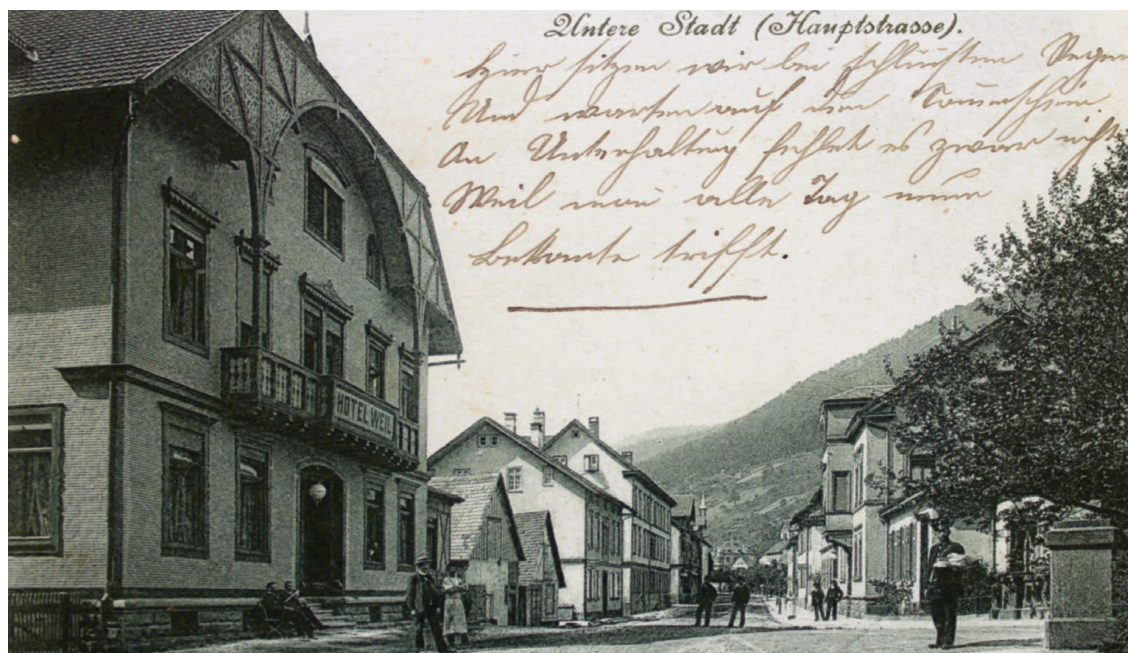 Untere Stadt (Hauptstrasse).
Hier sitzen wir bei schlimsten Regen
Und warten auf den Sonnenschein.
An Unterhaltung fehlet es zwar nicht
Weil man alle Tag neue
Bekante trifft.
HOTEL WEIL